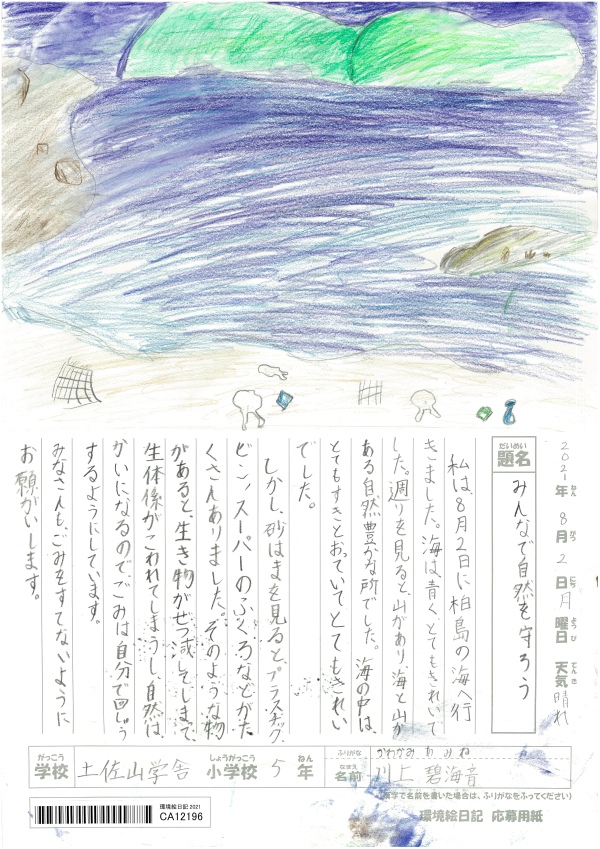 2021年 8月 2日 月曜日 天気 晴れ
ねん がつ にち ようび てんき
だいめい
題名
みんなで自然を守ろう
私は、8月2日に柏島の海へ行
きました。海は青くとてもきれいで
した。週りを見ると、山があり、海と山が
ある自然豊かな所でした。海の中は、
とてもすきとおっていてとてもきれい
でした。
しかし、砂はまを見るとプラスチック、
ビン、スーパーのふくろなどがた
くさんありました。そのような物
があると、生き物がぜつ滅してしまう
生体係がこわれてしまうし、自然は、
かいになるので、ごみは自分で回しゅう
するようにしています。
みなさんも、ごみをすてないように
お願がいします。
がっこう しょうがっこう ねん
学校 土佐山学舎 小学校 5年
ふりがな かわかみ あみね
なまえ
名前 川上 碧海音
(漢字で名前を書いた場合は、ふりがなをふってください)
環境絵日記 応募用紙
環境絵日記 2021
CA12196